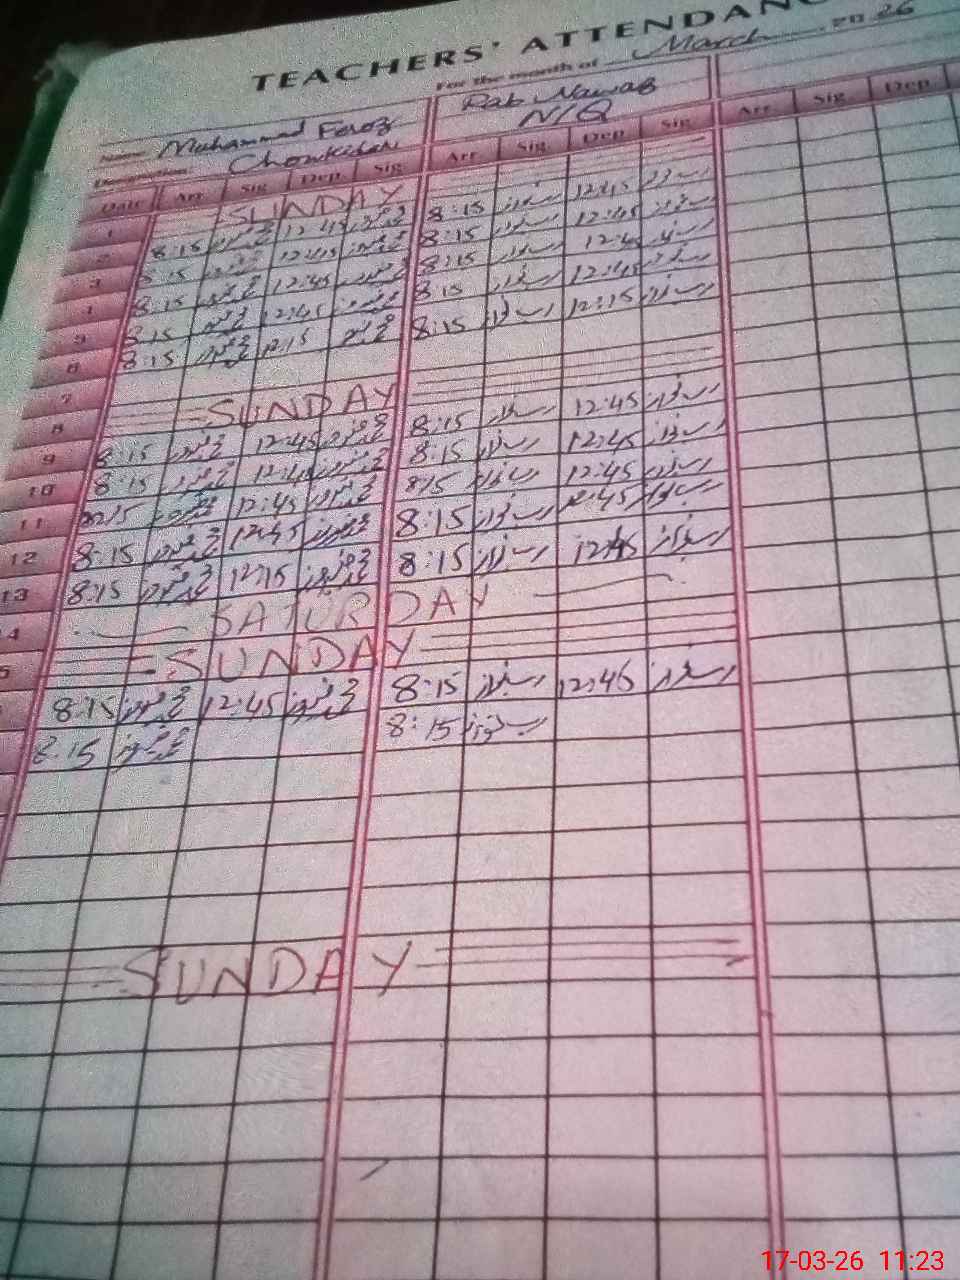 TEACHERS' ATTENDANC
For the month of March 2026
Name Muhammad Feroz Rab Nawaz
Designation: Chowkidar N/Q
Date Arr Sig Dep Sig Arr Sig Dep Sig Arr Sig Dep
1 SUNDAY
2 8:15 فیروز 12:45 فیروز 8:15 رب نواز 12:45 رب نواز
3 8:15 فیروز 12:45 فیروز 8:15 رب نواز 12:45 رب نواز
8:15 فیروز 12:45 فیروز 8:15 رب نواز 12:45 رب نواز
8:15 فیروز 12:45 فیروز 8:15 رب نواز 12:45 رب نواز
6 8:15 فیروز 12:15 فیروز 8:15 رب نواز 12:15 رب نواز
7
8 SUNDAY
9 8:15 فیروز 12:45 فیروز 8:15 رب نواز 12:45 رب نواز
10 8:15 فیروز 12:45 فیروز 8:15 رب نواز 12:45 رب نواز
11 فیروز 12:45 فیروز 8:15 رب نواز 12:45 رب نواز
12 8:15 فیروز 12:45 فیروز 8:15 رب نواز 12:45 رب نواز
13 8:15 فیروز 12:15 فیروز 8:15 رب نواز 12:45 رب نواز
4 SATURDAY
5 SUNDAY
8:15 فیروز 12:45 فیروز 8:15 رب نواز 12:45 رب نواز
8:15 فیروز 8:15 رب نواز
SUNDAY
17-03-26 11:23